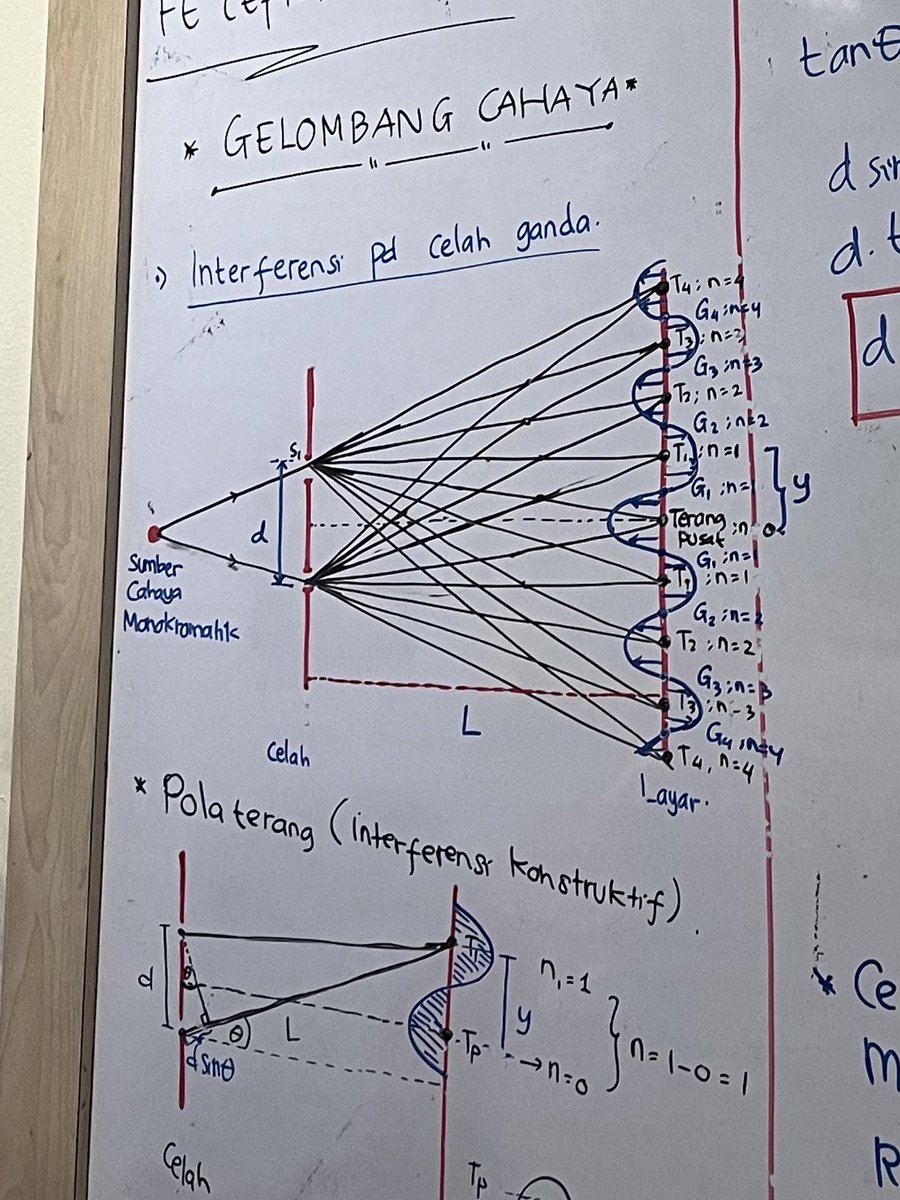 * GELOMBANG CAHAYA *
.) Interferensi pd celah ganda.
T4 ; n=4
G4 ; n=4
T3 ; n=3
G3 ; n=3
T2 ; n=2
G2 ; n=2
T1 ; n=1
G1 ; n=1
y
Terang pusat ; n 0
G1 ; n=1
T1 ; n=1
G2 ; n=2
T2 ; n=2
G3 ; n=3
T3 ; n=3
G4 ; n=4
T4, n=4
S1
d
Sumber
Cahaya
Monokromatik
L
Celah
Layar.
* Pola terang (interferensi konstruktif)
d
θ
θ
L
d sinθ
T1
y
Tp
n1=1
→ n=0
n = 1-0 = 1
Celah
Tp
tanθ
d sin
d. t
d
* Ce
m
R